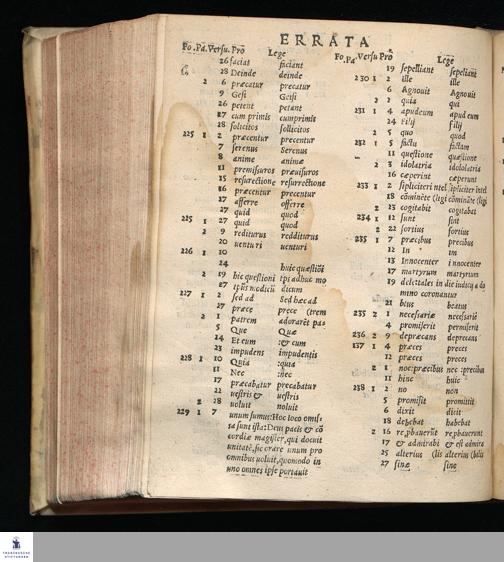 ERRATA
Fo. Pa. Versu. Prō Lege
26 faciat faciant
28 Deinde deinde
2 6 præcatur precatur
9 Gesi Geisi
26 petent petant
27 cum primis cumprimis
28 solicitos sollicitos
225 1 2 præcentur precentur
7 serenus Serenus
8 anime animæ
11 premissuros præuisuros
15 resurectione resurrectione
16 præcentur precentur
17 afferre offerre
27 quid quod
225 1 27 quid quod
2 9 rediturus redditurus
20 uenturi uenturi
226 1 10
24 huic quæstiōi
2 19 hic questioni tps adhuc mo
27 tpūs modicū dicum
227 1 2 sed ad Sed hæc ad
27 præce prece (trem
2 1 patrem adorarēt pa-
5 Que Quæ
14 Et cum :& cum
23 impudens impudentis
228 1 10 Quia :quia
11 Nec :nec
17 præcabatur precabatur
22 uestris & uestris
2 28 uoluit noluit
229 1 7 unum sumus: Hoc loco omis-
sa sunt ista: Deus pacis & cō
cordiæ magister, qui docuit
unitatē, sic orare unum pro
omnibus uoluit, quomodo in
uno omnes ipse portauit
Fo. Pa Versu Prō Lege
19 sepelliant sepeliant
230 1 2 ille ille
6 Agnouit Agnouit
2 2 quia qui
231 1 4 apudeum apud eum
24 Filij filij
2 5 quo quod
232 1 5 factu factam
11 questione quæstione
2 3 idolatria idololatria
16 cæperint cæperunt
233 1 2 sipliciteri ntel sipliciter intel
18 cōmināte (ligi cōmināte (legi
2 23 cogitabit cogitabat
234 1 12 sunt sint
2 22 sortius fortius
235 1 7 præcibus precibus
12 In in
13 Innocenter innocenter
17 martyrum martyrum
19 delectales in die iudicij a do
mino coronantur
21 bius beatus
235 2 1 necessariæ necessarie
4 promiserit permiserit
236 2 9 depræcans deprecans
137 1 4 præces preces
12 præces preces
2 1 noc:præcibus nec :precibus
11 hinc huic
238 1 2 no non
5 promisit promittit
6 dixit dicit
18 debebat habebat
2 16 rephauerūt rephauerunt
17 & admirabi & est admira
25 alterius (lis alterius (bilis
27 sinæ sine